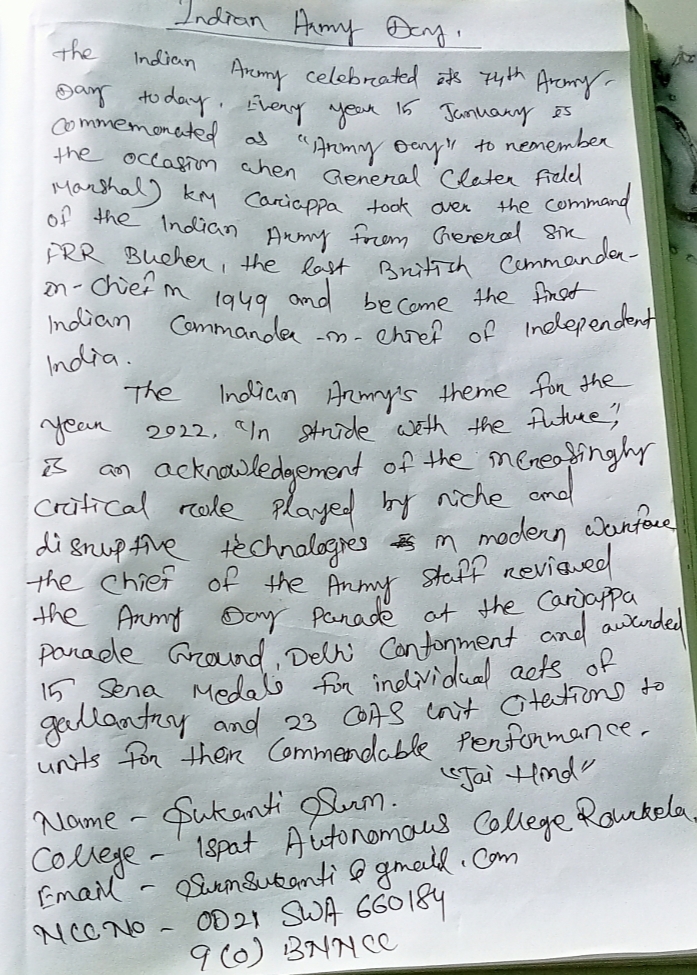 Indian Army Day.
The Indian Army celebrated its 74th Army
Day today. Every year 15 January is
Commemorated as "Army Day" to remember
the occasion when General (Later Field
Marshal) KM Cariappa took over the command
of the Indian Army from General Sir
FRR Bucher, the last British Commander-
in-Chief in 1949 and became the first
Indian Commander-in-chief of Independent
India.
The Indian Army's theme for the
year 2022, "In stride with the future",
is an acknowledgement of the increasingly
critical role played by niche and
disruptive technologies in modern warfare
the chief of the Army staff reviewed
the Army Day Parade at the Cariappa
parade Ground, Delhi Cantonment and awarded
15 Sena Medals for individual acts of
gallantry and 23 COAS unit citations to
units for their Commendable Performance.
"Jai Hind"
Name - Sukanti
College - Ispat Autonomous College Rourkela,
Email - @gmail.com
NCC NO - OD21 SWA 660184
9(O) BNNCC